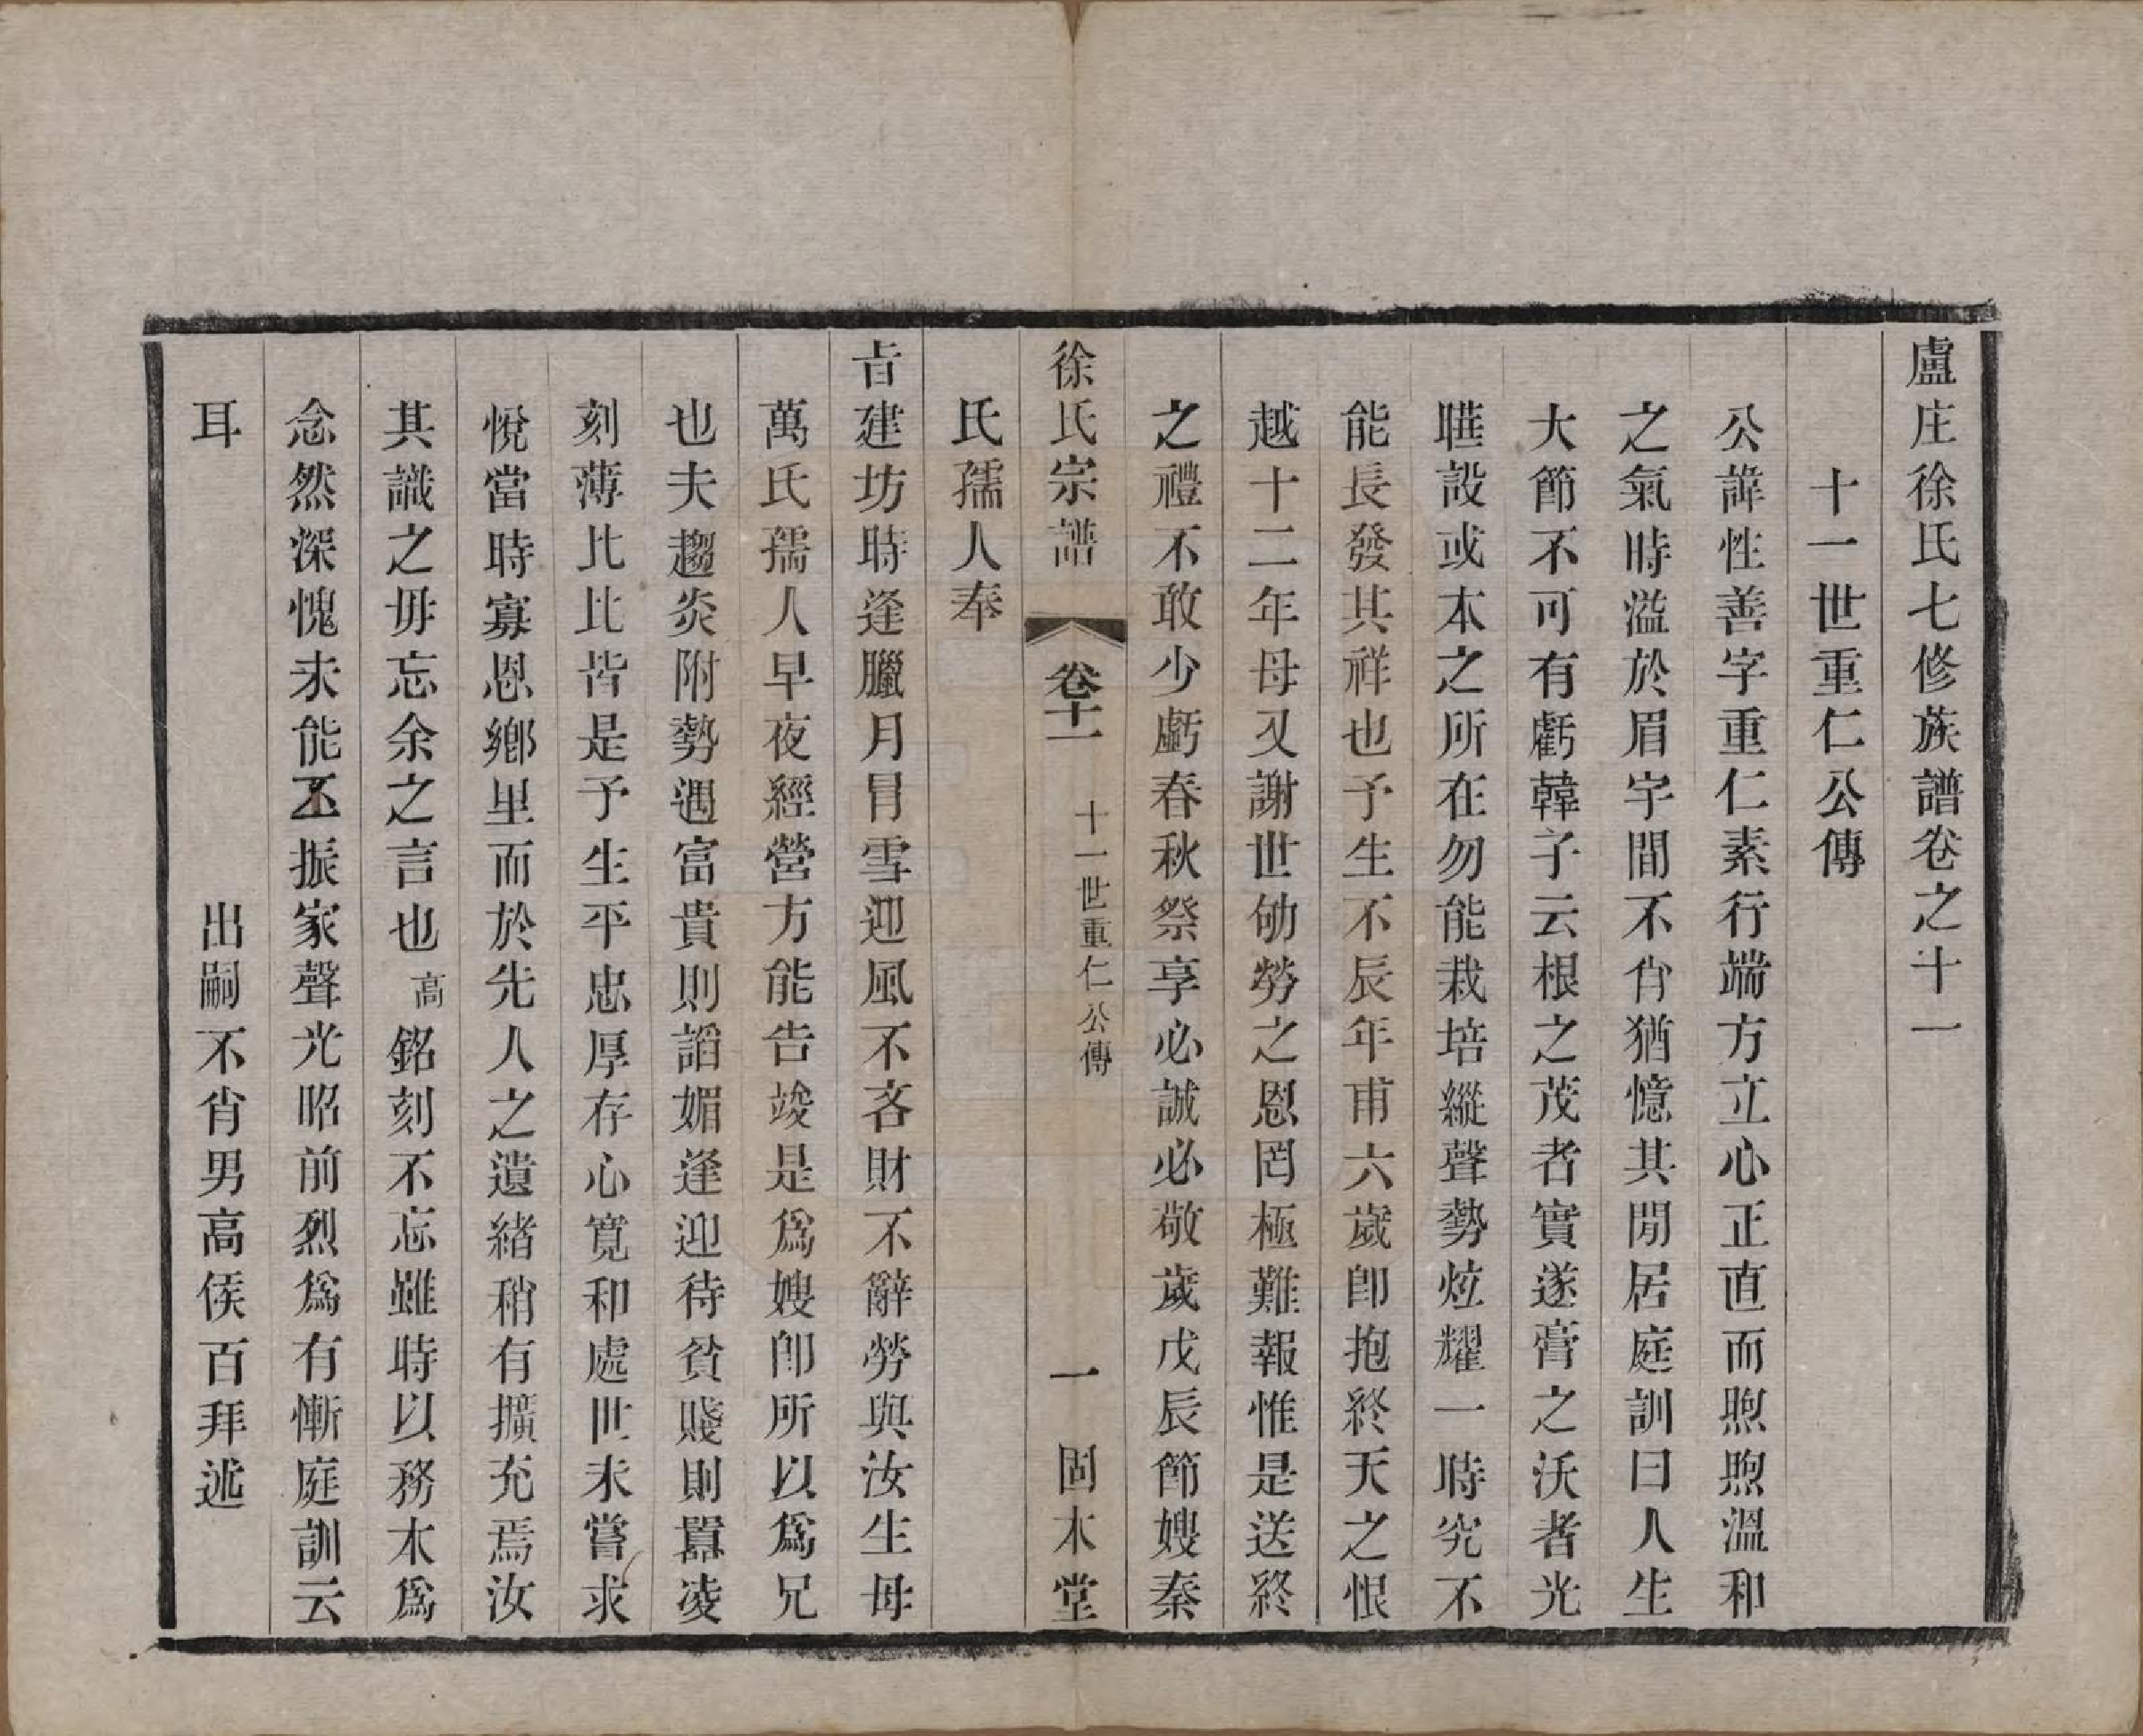 盧庄徐氏七修族譜卷之十一
十一世重仁公傳
公諱性善字重仁素行端方立心正直而煦煦溫和
之氣時溢於眉宇間不肖猶憶其閒居庭訓曰人生
大節不可有虧韓子云根之茂者實遂膏之沃者光
曄設或本之所在勿能栽培縱聲勢炫耀一時究不
能長發其祥也予生不辰年甫六歲卽抱終天之恨
越十二年母又謝世劬勞之恩罔極難報惟是送終
之禮不敢少虧春秋祭享必誠必敬歲戊辰節嫂秦
徐氏宗譜 卷十一 十一世重仁公傳 一 固本堂
氏孺人奉
旨建坊時逢臘月冒雪迎風不吝財不辭勞與汝生母
萬氏孺人早夜經營方能告竣是爲嫂卽所以爲兄
也夫趨炎附勢遇富貴則諂媚逢迎待貧賤則囂凌
刻薄比比皆是予生平忠厚存心寬和處世未嘗求
悅當時寡恩鄉里而於先人之遺緒稍有擴充焉汝
其識之毋忘余之言也高銘刻不忘雖時以務本爲
念然深愧未能丕振家聲光昭前烈爲有慚庭訓云
耳 出嗣不肖男高俟百拜述